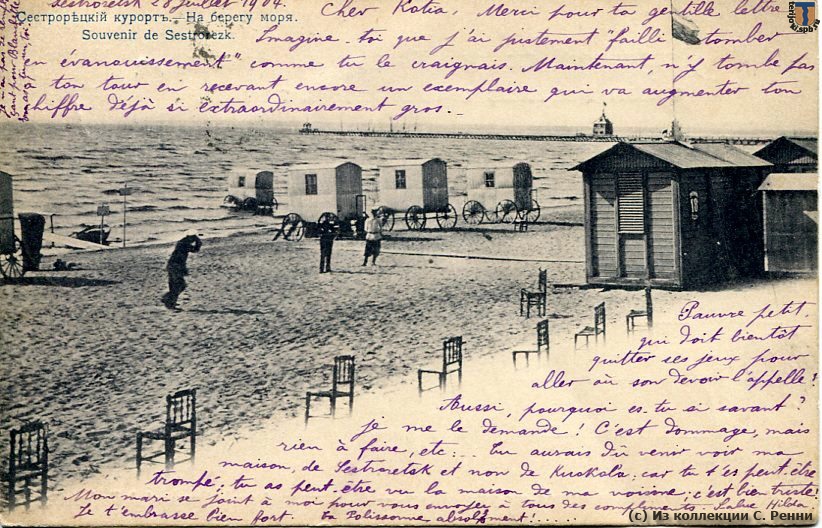 Sestroretsk 28 Juillet 1904.
Сестрорѣцкій курортъ. На берегу моря.
Souvenir de Sestroretzk.
Cher Kotia, Merci pour ta gentille lettre
Imagine-toi que j'ai justement "failli tomber
en évanouissement" comme tu le craignais. Maintenant, n'y tombe pas
à ton tour en recevant encore un exemplaire qui va augmenter ton
chiffre déjà si extraordinairement gros.
Pauvre petit,
qui doit bientôt
quitter ses jeux pour
aller où son devoir l'appelle!
Aussi, pourquoi es-tu si savant?
je me le demande! C'est dommage, mais
rien à faire, etc... Tu aurais dû venir voir ma
maison, de Sestroretsk et non de Kuokala, car tu t'es peut-être
trompé, tu as peut-être vu la maison de ma voisine; c'est bien triste!
Mon mari se joint à moi pour vous envoyer à tous des compliments. Salue Hilda
Je t'embrasse bien fort. Ta Polissonne absolument!...
terijoki.spb.ru
(c) Из коллекции С. Ренни